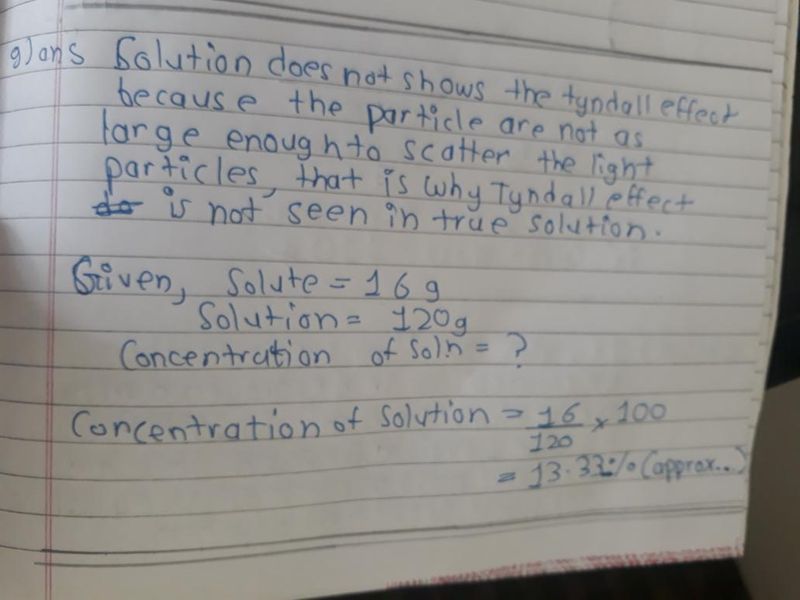 g) ans Solution does not shows the tyndall effect
because the particle are not as
large enough to scatter the light
particles, that is why Tyndall effect
is not seen in true solution.
Given, Solute = 16 g
Solution = 120g
Concentration of Soln = ?
Concentration of solution = 16/120 × 100
= 13.33% (approx..)